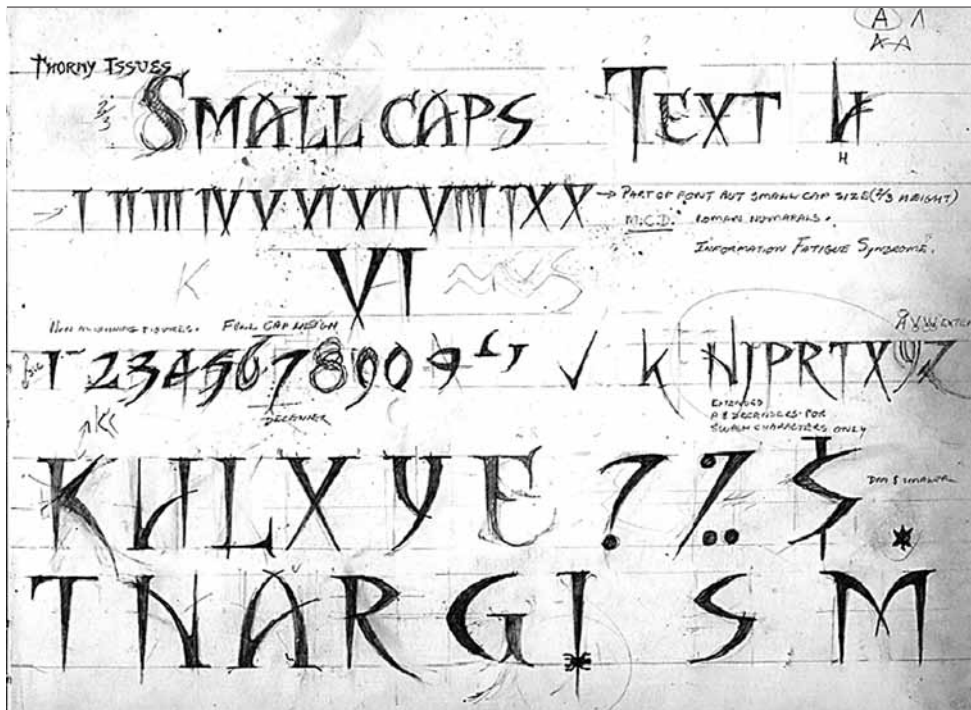 A Λ
A A
THORNY ISSUES
2/3
SMALL CAPS TEXT H
H
I II III IV V VI VII VIII IX X → PART OF FONT BUT SMALL CAP SIZE (2/3 HEIGHT)
M.C.D. ROMAN NUMARALS.
INFORMATION FATIGUE SYNDROME.
K VI
NON ALIGNING FIGURES. FULL CAP DESIGN
1 2 3 4 5 6 7 8 9 0 9 √ K N J P R T X Y Z
DECENDER
EXTENDED
DECENDERS FOR
SWASH CHARACTERS ONLY
K H L X Y E ? % $
T N A R G ! S M